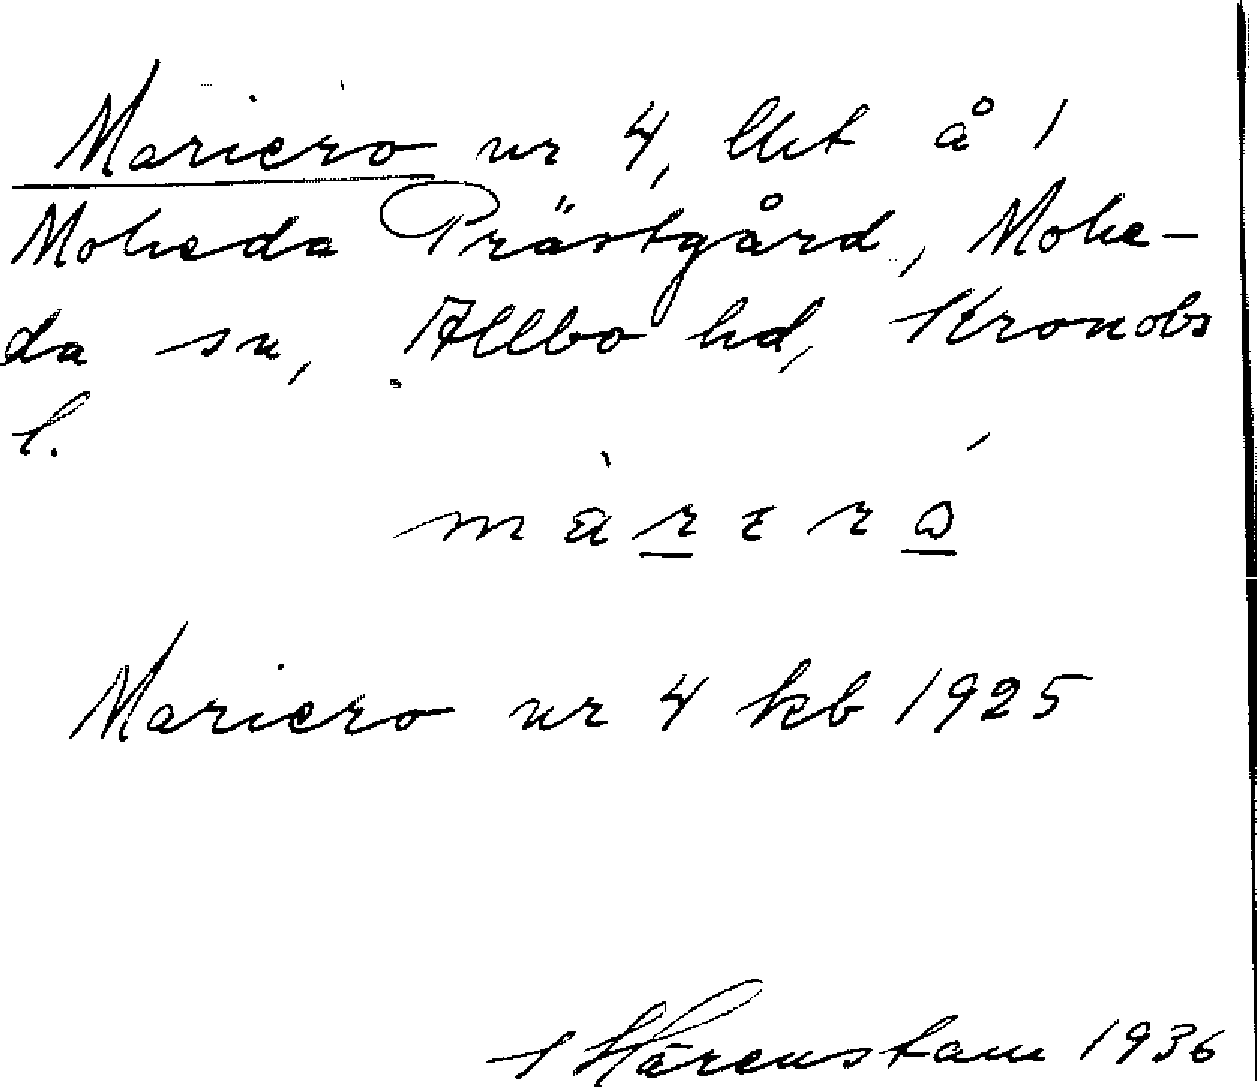 Mariero nr 4, lht å 1
Moheda Prästgård, Mohe-
da sn, Allbo hd, Kronobs
l.
màrɛró
Mariero nr 4 kb 1925
Härenstam 1936